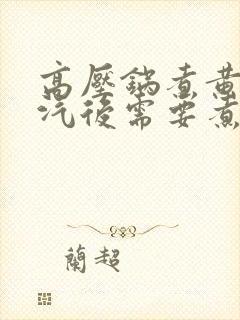 高壓鍋煮黃
汽後需要煮
蘭超